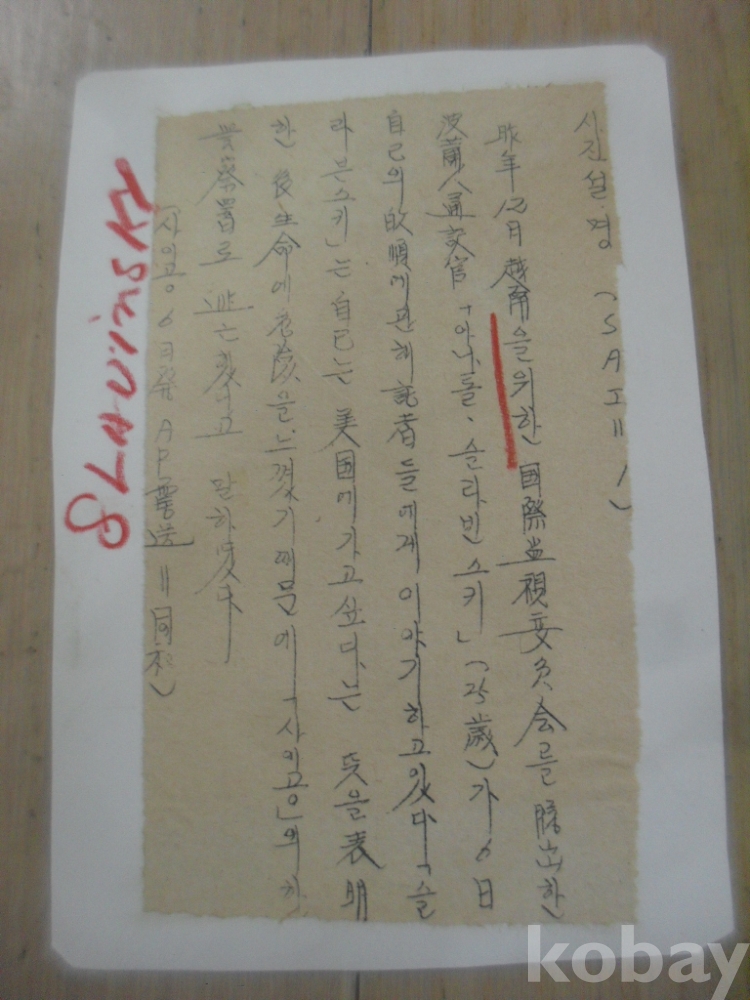 사진설명 (SAI=1)
昨年 12月 越南을위한 国際监視委员会를 脱出한
波蘭人通訳官「아나돌·슬라빈스키」(25歲)가 6日
自己의 관해 記者들에게 이야기하고있다「슬
라븐스키」는 自己는 美国에가고싶다는 뜻을 表明
한 後 生命에 危険을 느꼈기때문에「사이공」의
警察署로 했다고 말하였다
(사이공 6日発 AP電送=同和)
SLAWiNSKY
kobay